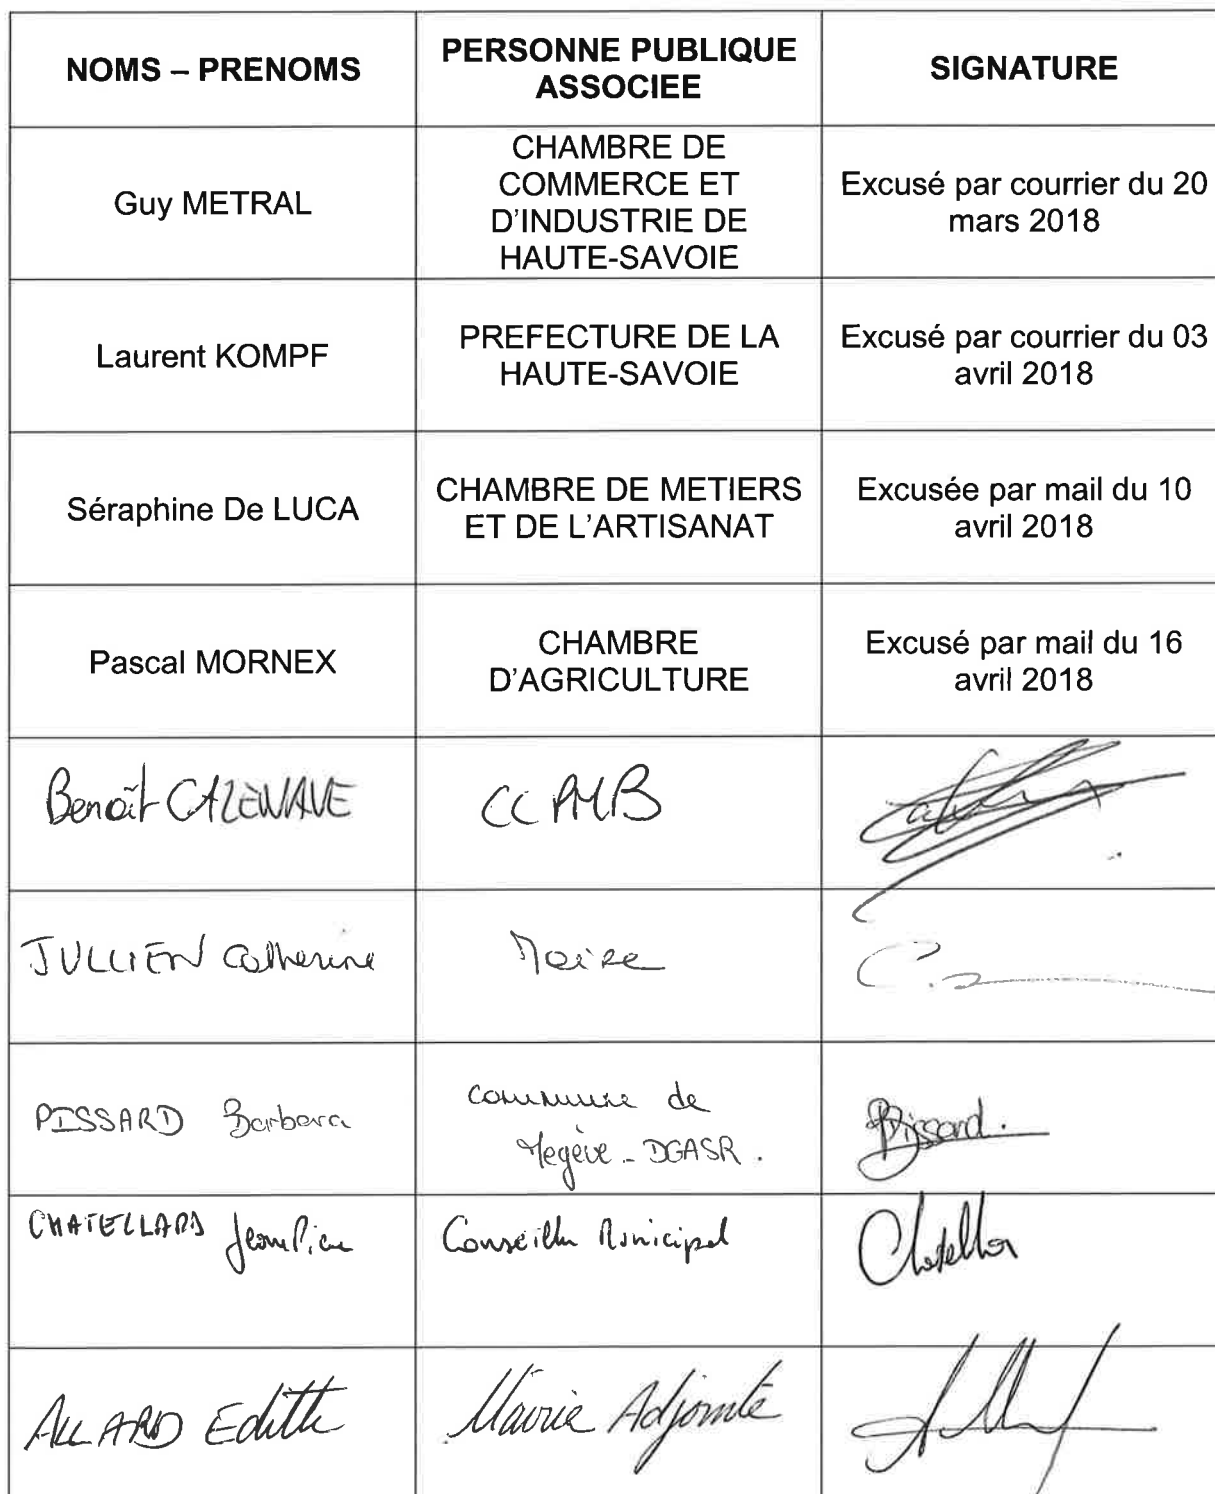 NOMS – PRENOMS
PERSONNE PUBLIQUE
ASSOCIEE
SIGNATURE
Guy METRAL
CHAMBRE DE
COMMERCE ET
D'INDUSTRIE DE
HAUTE-SAVOIE
Excusé par courrier du 20
mars 2018
Laurent KOMPF
PREFECTURE DE LA
HAUTE-SAVOIE
Excusé par courrier du 03
avril 2018
Séraphine De LUCA
CHAMBRE DE METIERS
ET DE L'ARTISANAT
Excusée par mail du 10
avril 2018
Pascal MORNEX
CHAMBRE
D'AGRICULTURE
Excusé par mail du 16
avril 2018
Benoît CAZENAVE
CCPMB
JULLIEN Catherine
Maire
PISSARD Barbara
commune de
Megève - DGASR.
Pissard.
CHATELLARD Jean Pierre
Conseiller Municipal
ALLARD Edith
Mairie Adjointe